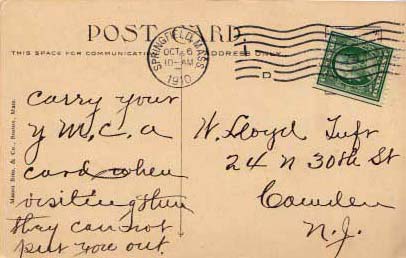 POST CARD.
THIS SPACE FOR COMMUNICATION
ADDRESS ONLY.
SPRINGFIELD, MASS.
OCT 6
10-AM
1910
D
Mason Bros. & Co., Boston, Mass.
Carry your
Y M. C. A
card when
visiting then
they can not
put you out.
W. Lloyd Tuft
24 N 30th St
Camden
N. J.